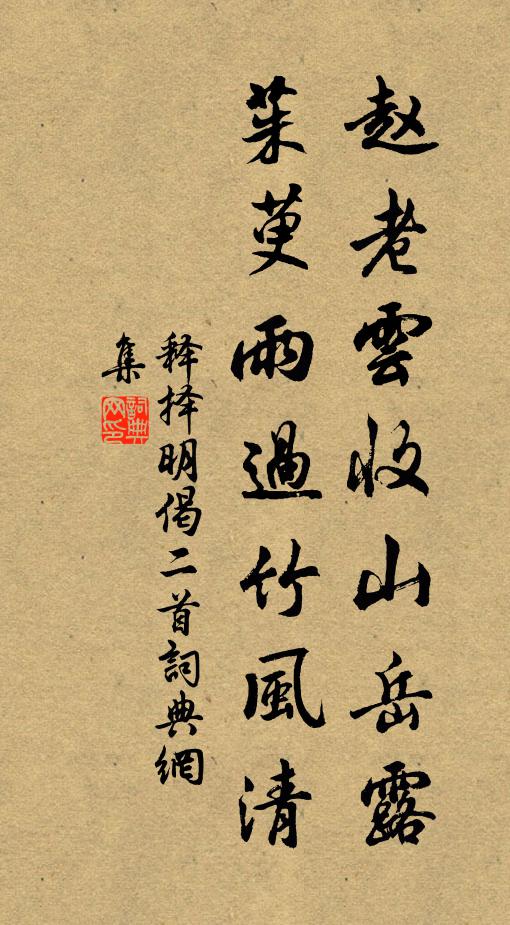 赵老雲收山岳露
茱萸雨過竹風清
释择明偈二首詞典網
集
詞典
网印